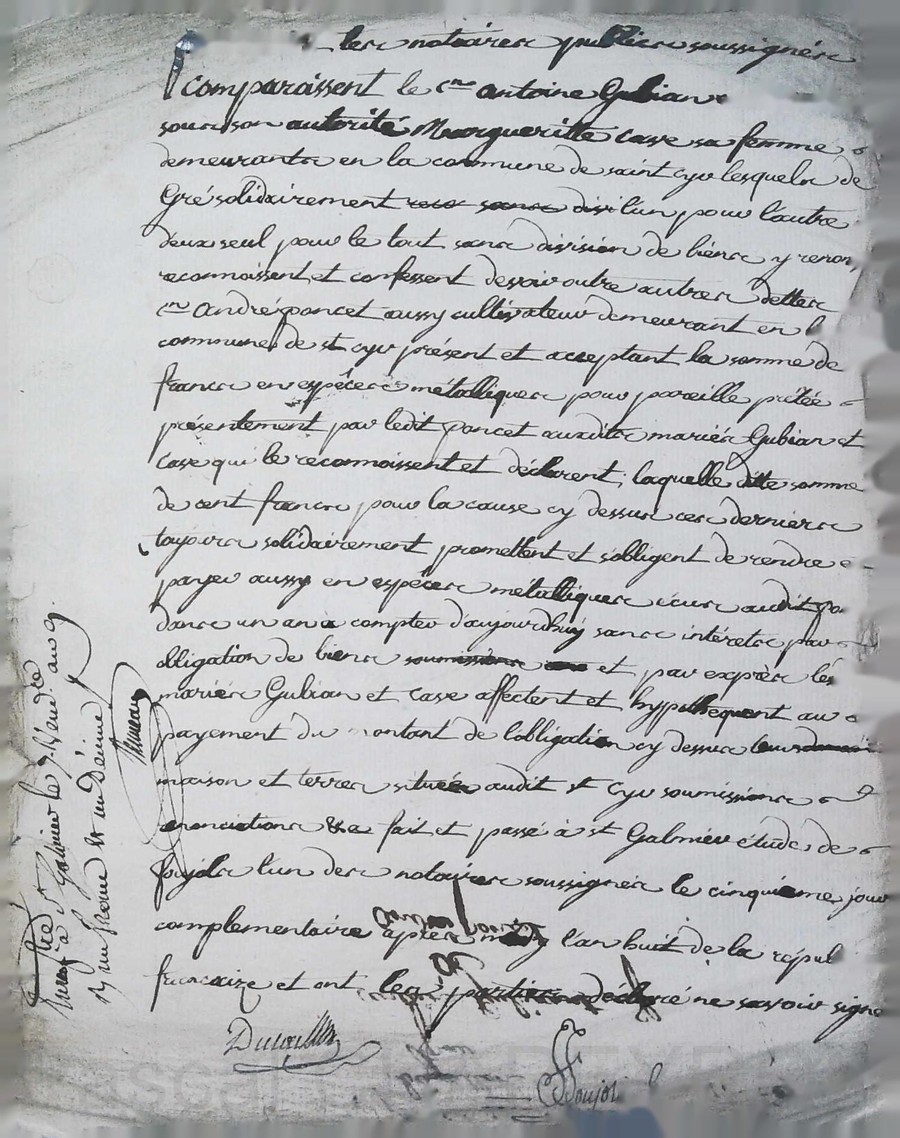 les notaires publics soussignés
comparaissent le cen antoine Gubian
sous son autorité Margueritte Cave sa femme
demeurants en la commune de saint cyr lesquels de
Gré solidairement sans divi l'un pour l'autre
deux seul pour le tout sans division de biens y renon
reconnoissent et confessent devoir outre autres dettes
cen André poncet aussy cultivateur demeurant en l
commune de st cyr présent et acceptant la somme de
francs en espèces métalliques pour pareille prêtée
présentement par ledit poncet auxdits mariés Gubian et
Cave qui le reconnoissent et déclarent, laquelle ditte somme
de cent francs pour la cause cy dessus ces derniers
toujours solidairement promettent et s'obligent de rendre
payer aussy en espèces métalliques audit po
dans un an à compter d'aujourdhuy sans intérêts par
obligation de biens soumissions et par exprès les
mariés Gubian et Cave affectent et hypothequent au
payement du montant de l'obligation cy dessus
maison et terres situés audit st Cyr soumissions
renonciations &a fait et passé à st Galmier étude de
soujols l'un des notaires soussignés le cinquieme jour
complementaire après l'an huit de la répul
francaize et ont les parties déclaré ne savoir signe
Enregistré à st Galmier le 9 Vendre an 9.
Reçu un franc et un Décime